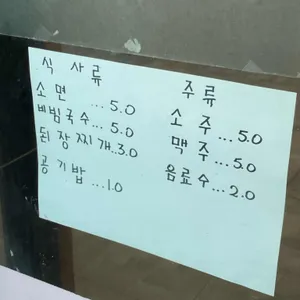 식사류
소면...5.0
비빔국수...5.0
된장찌개..3.0
공기밥...1.0
주류
소주...5.0
맥주...5.0
음료수...2.0